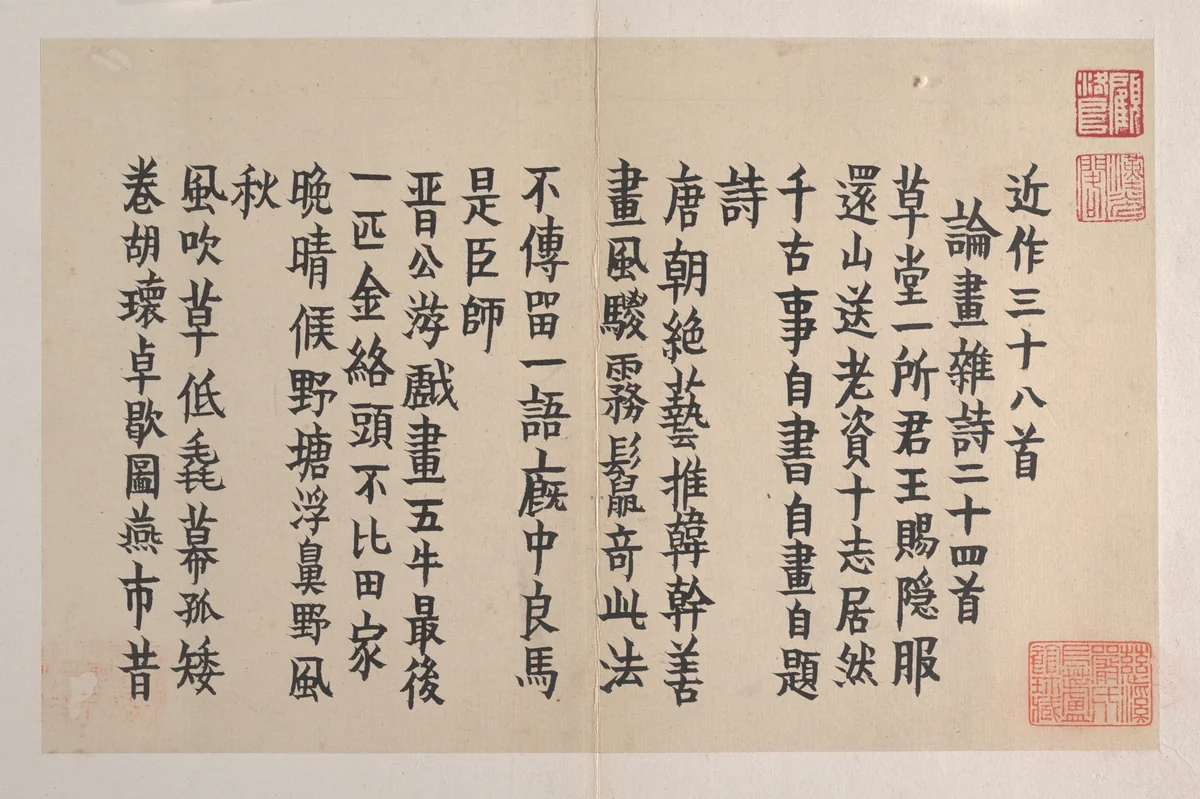 近作三十八首
論畫雜詩二十四首
草堂一所君王賜隱服
還山送老資十志居然
千古事自書自畫自題
詩
唐朝絕藝推韓幹善
畫風騣霧鬣奇此法
不傳畱一語廄中良馬
是臣師
晉公游戲畫五牛最後
一匹金絡頭不比田家
晚晴候野塘浮鼻野風
秋
風吹草低毳幕孤矮
卷胡瓌卓歇圖燕市昔
顧洛阜
漢光閣